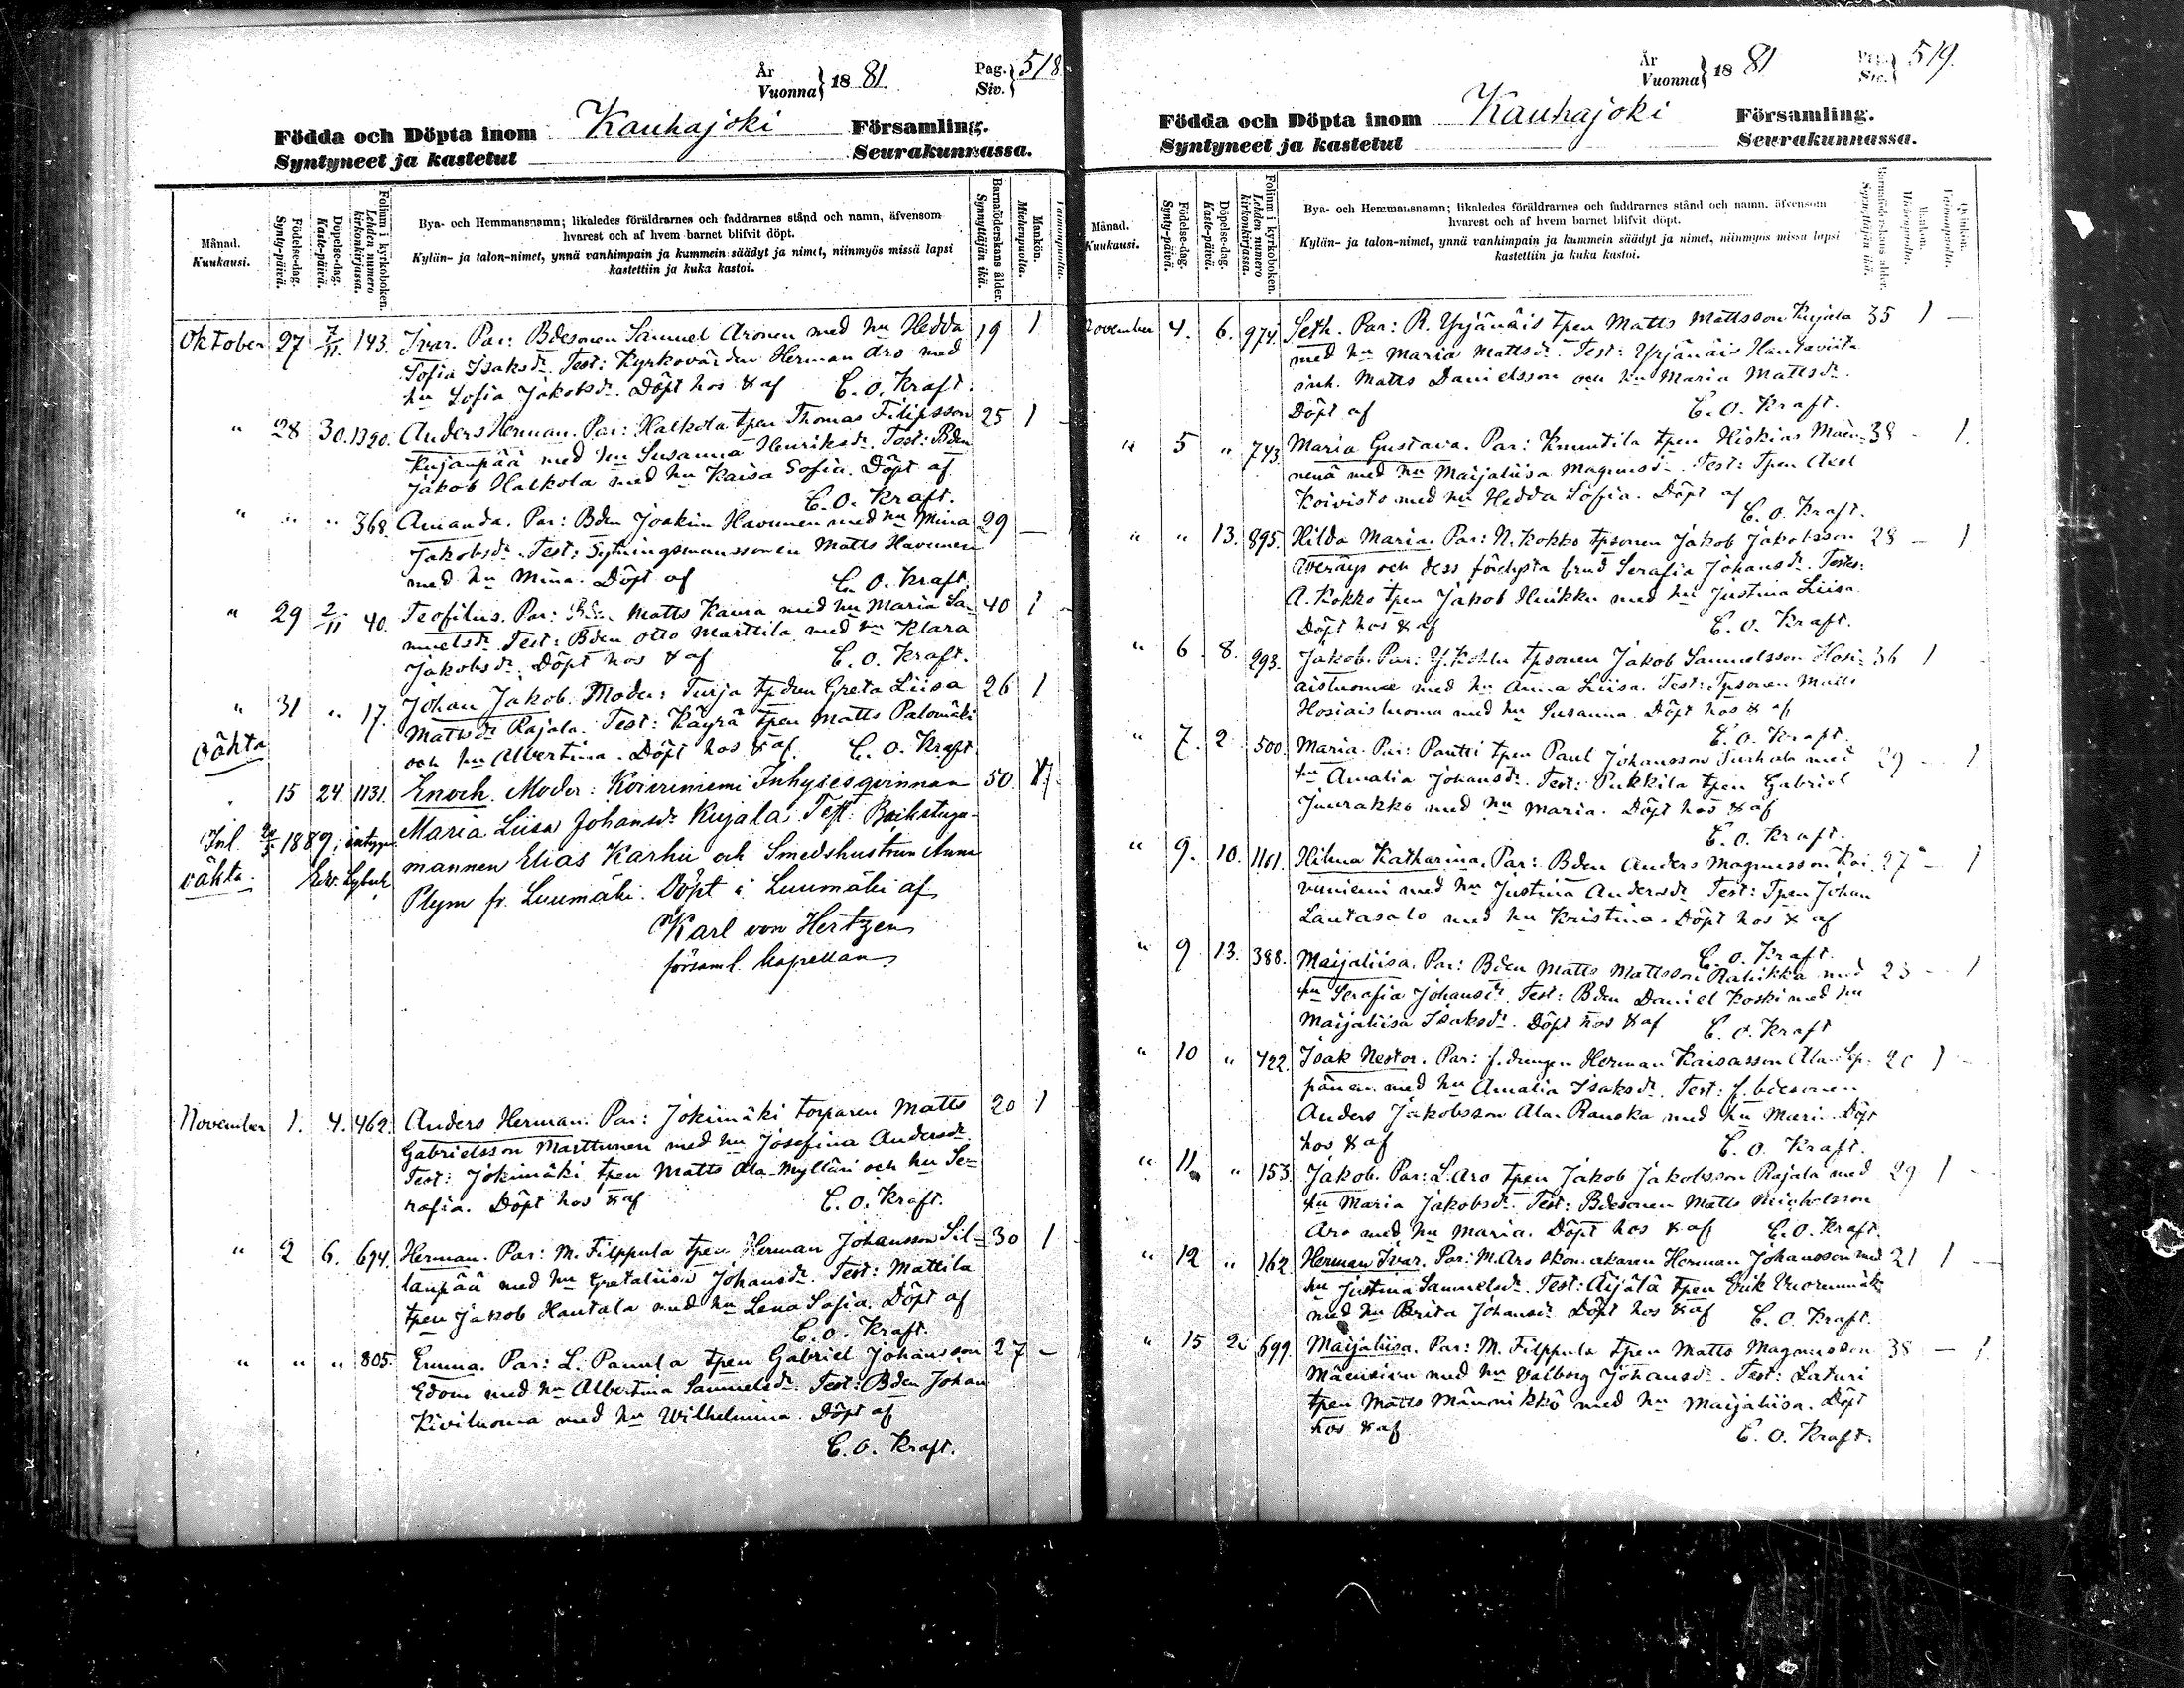 År
Vuonna } 18 81.
Pag.
Siv. } 518
Födda och Döpta inom Kauhajoki Församling.
Syntyneet ja kastetut Seurakunnassa.
Månad.
Kuukausi.
Födelse-dag.
Synty-päivä.
Döpelse-dag.
Kaste-päivä.
Folium i kyrkoboken.
Lehden numero kirkonkirjassa.
Bya- och Hemmansnamn; likaledes föräldrarnes och faddrarnes stånd och namn, äfvensom
hvarest och af hvem barnet blifvit döpt.
Kylän- ja talon-nimet, ynnä vanhimpain ja kummein säädyt ja nimet, niinmyös missä lapsi
kastettiin ja kuka kastoi.
Barnaföderskans ålder.
Synnyttäjän ikä.
Mankön.
Miehenpuolia.
Oktober 27 7/11. 143. Ivar. Par: Bdesonen Samuel Aronen med hu Hedda 19 1
Sofia Isaksdr. Test: Kyrkovärden Herman Aro med
hu Sofia Jakobsdr. Döpt hos & af C. O. Kraft.
" 28 30. 1390. Anders Herman. Par: Halkola tpen Thomas Filipsson 25 1 -
Kujanpää med hu Susanna Henriksdr. Test: Bden
Jakob Halkola med hu Kaisa Sofia. Döpt af
C. O. Kraft.
" " " 368. Amanda. Par: Bden Joakim Havunen med hu Mina 29 —
Jakobsdr. Test: Sytningsmanssonen Matts Havunen
med hu Mina. Döpt af C. O. Kraft.
" 29 2/11 40. Teofilus. Par: Matts Kaura med hu Maria Sa- 40 1 -
muelsdr. Test: Bden Otto Marttila med hu Klara
Jakobsdr. Döpt hos & af C. O. Kraft.
" 31 " 17. Johan Jakob. Moder: Turja tpdrn Greta Liisa 26 1
oäkta Mattsdr Rajala. Test: Käyrä tpen Matts Palomäki
och hu Albertina. Döpt hos & af C. O. Kraft
" 15 24. 1131. Enoch. Moder: Koivuniemi Inhysesqvinnan 50.
Inl. 1889; Maria Liisa Johansdr Kujala. Test: Backstugu-
oäkta. mannen Elias Karhu och Smedshustrun Anna
Plym fr. Luumäki. Döpt i Luumäki af
Karl von Hertzen
församl. kapellan.
November 1. 4. 462. Anders Herman. Par: Jokimäki torparen Matts 20 1
Gabrielsson Marttunen med hu Josefina Andersdr.
Test: Jokimäki tpen Matts Ala-Mylläri och hu Se-
rafia. Döpt hos & af C. O. Kraft.
" 2 6. 694. Herman. Par: M. Filppula tpen Herman Johansson Sil- 30 1
lanpää med hu Gretaliisa Johansdr. Test: Mattila
tpen Jakob Hautala med hu Lena Sofia. Döpt af
C. O. Kraft.
" " " 805. Emma. Par: L. Panula tpen Gabriel Johansson 27 -
Edom med hu Albertina Samuelsdr. Test: Bden Johan
Kiviluoma med hu Wilhelmina. Döpt af
C. O. Kraft.
År
Vuonna } 18 81
Pag.
Siv. } 519.
Födda och Döpta inom Kauhajoki Församling.
Syntyneet ja kastetut Seurakunnassa.
Månad.
Kuukausi.
Födelse-dag.
Synty-päivä.
Döpelse-dag.
Kaste-päivä.
Folium i kyrkoboken.
Lehden numero kirkonkirjassa.
Bya- och Hemmansnamn; likaledes föräldrarnes och faddrarnes stånd och namn, äfvensom
hvarest och af hvem barnet blifvit döpt.
Kylän- ja talon-nimet, ynnä vanhimpain ja kummein säädyt ja nimet, niinmyös missä lapsi
kastettiin ja kuka kastoi.
Barnaföderskans ålder.
Synnyttäjän ikä.
November 4. 6. 974. Seth. Par: R. Yrjänäis tpen Matts Mattsson Kujala 35 1 —
med hu Maria Mattsdr. Test: Yrjänäis Hautaviita
inh. Matts Danielsson och hu Maria Mattsdr.
Döpt af C. O. Kraft.
" 5 " 743. Maria Gustava. Par: Knuutila tpen Hiskias Mäen- 38 - 1.
nenä med hu Maijaliisa Magnusdr. Test: Tpen Axel
Koivisto med hu Hedda Sofia. Döpt af
C. O. Kraft.
" " 13. 895. Hilda Maria. Par: N. Kokko tpsonen Jakob Jakobsson 28 — 1
och dess förlysta brud Serafia Johansdr. Testes:
A. Kokko tpen Jakob Huikku med hu Justina Liisa.
Döpt hos & af C. O. Kraft.
" 6 8. 293. Jakob. Par: tpsonen Jakob Samuelsson Hosi- 36 1
aisluoma med hu Anna Liisa. Test: Tpsonen Matts
Hosiaisluoma med hu Susanna. Döpt hos & af
C. O. Kraft.
" 7. 2 500. Maria. Par: Pantti tpen Paul Johansson med 29 - 1
hu Amalia Johansdr. Test: Pukkila tpen Gabriel
Juurakko med hu Maria. Döpt hos & af
C. O. Kraft.
" 9. 10. 1161. Hilma Katharina. Par: Bden Anders Magnusson Koi- 27 - 1
vuniemi med hu Justina Andersdr. Test: Tpen Johan
Lautasalo med hu Kristina. Döpt hos & af
C. O. Kraft.
" 9 13. 388. Maijaliisa. Par: Bden Matts Mattsson Rahikka med 23 - 1
hu Serafia Johansdr. Test: Bden Daniel Koski med hu
Maijaliisa Isaksdr. Döpt hos & af C. O. Kraft
" 10 " 422. Isak Nestor. Par: f. drengen Herman Kaisasson Ala-Sep- 20 1 -
pänen med hu Amalia Isaksdr. Test: f. bdesonen
Anders Jakobsson Ala-Ranska med hu Mari. Döpt
hos & af C. O. Kraft.
" 11 " 153. Jakob. Par: L. Aro tpen Jakob Jakobsson Rajala med 29 1 -
hu Maria Jakobsdr. Test: Bdesonen Matts Michelsson
Aro med hu Maria. Döpt hos & af C. O. Kraft.
" 12 " 162. Herman Ivar. Par: M. Aro skomakaren Herman Johansson med 21 1 —
hu Justina Samuelsdr. Test: Äijälä tpen Erik Vuorenmäk
med hu Brita Johansdr. Döpt hos & af C. O. Kraft.
" 15 699. Maijaliisa. Par: M. Filppula tpen Matts Magnusson 38 — 1.
med hu Valborg Johansdr. Test: Laturi
tpen Matts Männikkö med hu Maijaliisa. Döpt
hos & af C. O. Kraft.